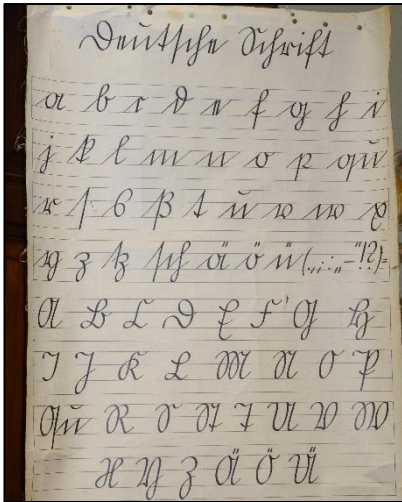 Deutsche Schrift
a b c d e f g h i
j k l m n o p qu
r ſ s ß t u v w x
y z tz ſch ä ö ü (.,:;„-"!?)=
A B C D E F G H
I J K L M N O P
Qu R S St T U V W
X Y Z Ä Ö Ü